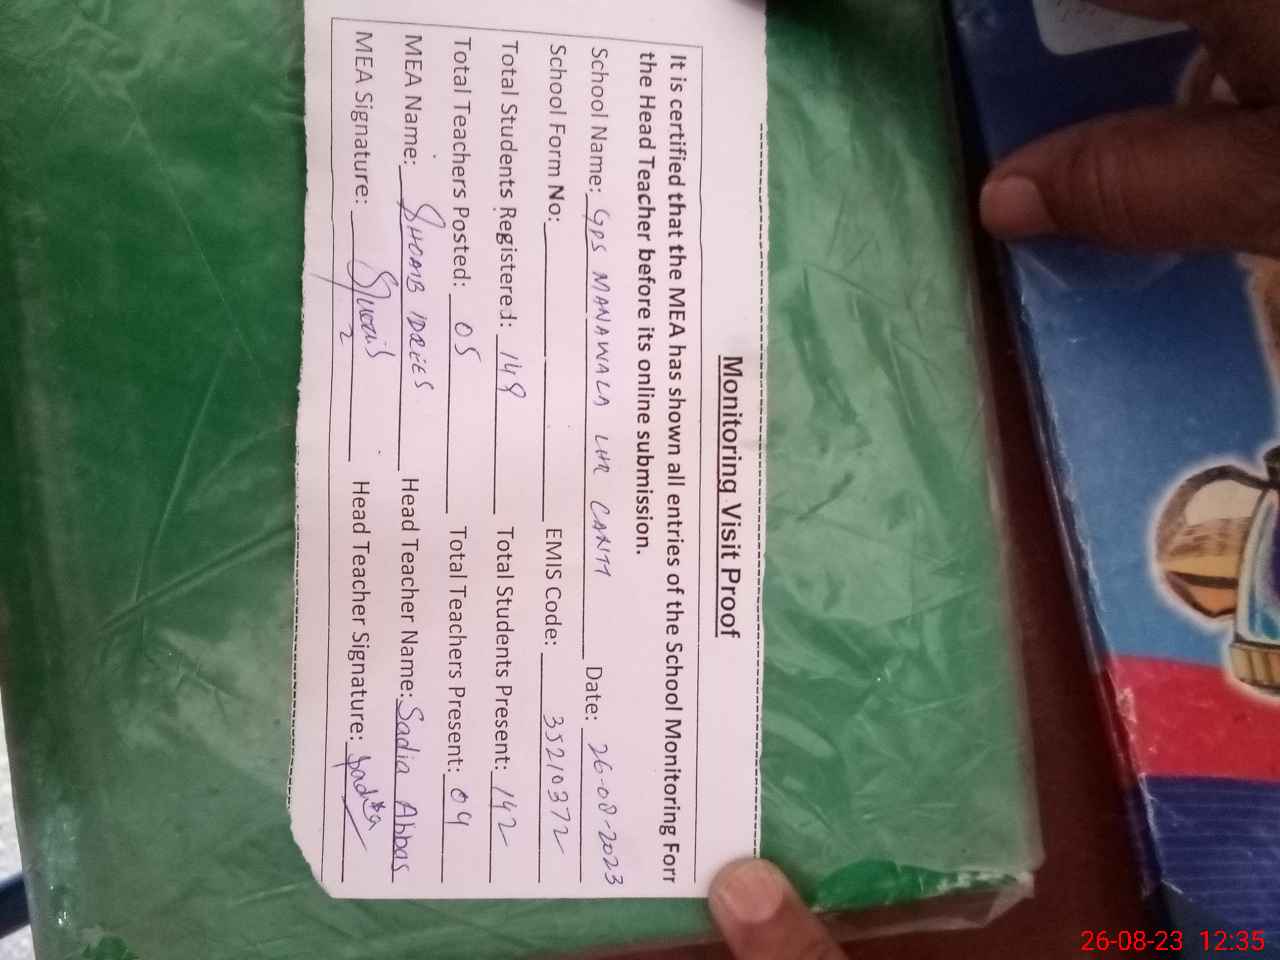 Monitoring Visit Proof
It is certified that the MEA has shown all entries of the School Monitoring Forr
the Head Teacher before its online submission.
School Name: GPS MANAWALA LHR CANTT Date: 26-08-2023
School Form No: EMIS Code: 35210372
Total Students Registered: 148 Total Students Present: 142
Total Teachers Posted: 05 Total Teachers Present: 04
MEA Name: SHOAIB IDREES Head Teacher Name: Sadia Abbas
MEA Signature: Head Teacher Signature: Sadia
26-08-23 12:35